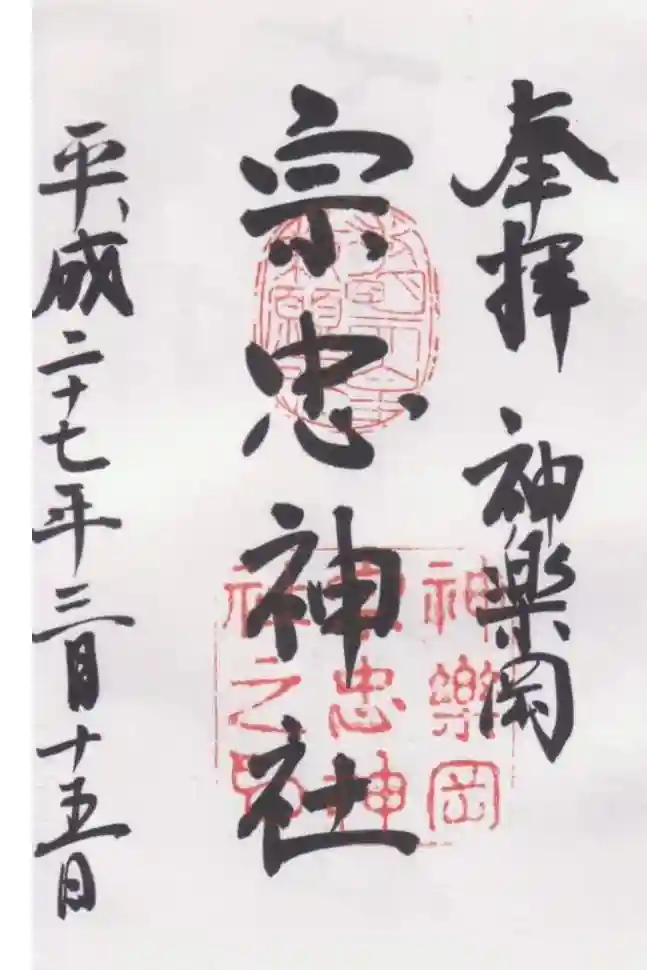 奉拝 神楽岡
宗忠神社
平成二十七年三月十五日
神樂岡
宗忠神
社之印